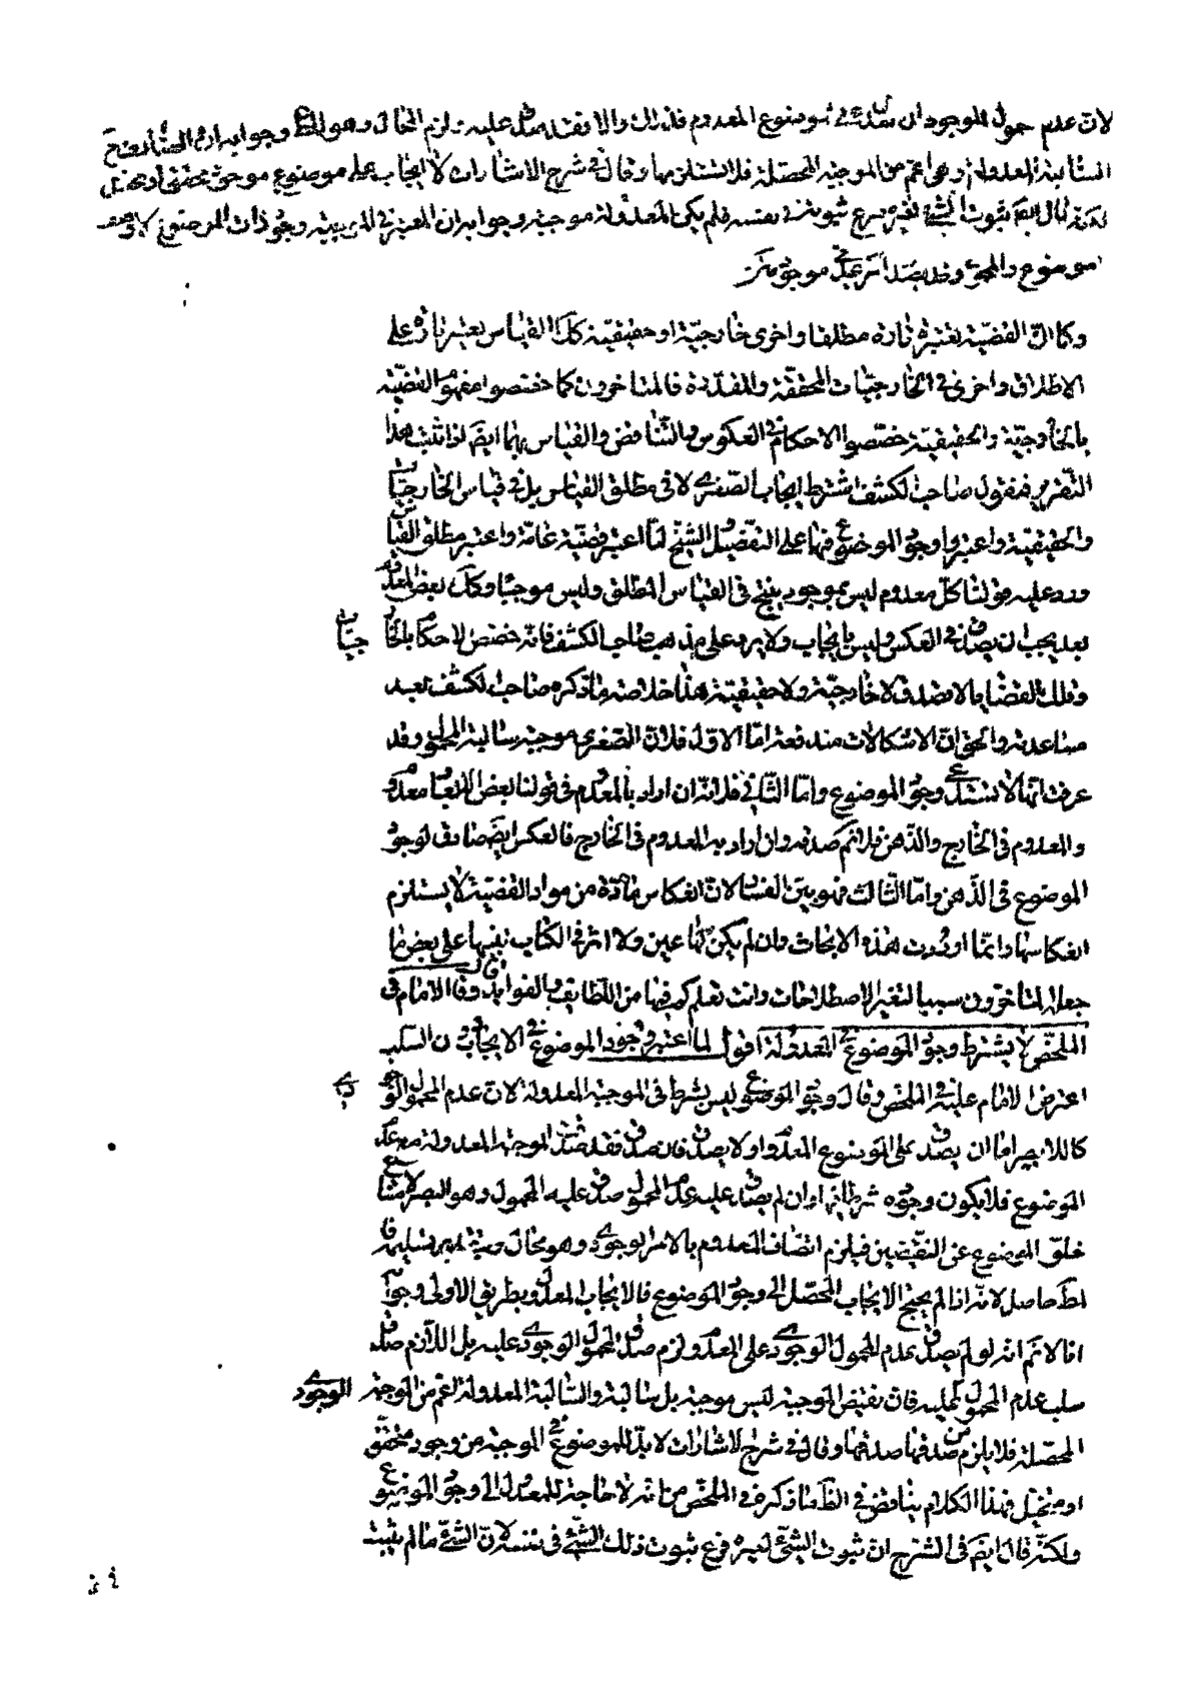 لان عدم حمول الموجود ان صدق في موضوع المعدوم فذاك والا فقد صدق عليه ويلزم الخلف وهو المط وجوابه ان
السالبة المعدولة وهى اعم من الموجبة المحصلة فلا تستلزمها وقال في شرح الاشارات لا ايجاب على موضوع موجود محقق او متخيل
لكنه قال ايضا ثبوت الشئ لغيره فرع ثبوته في نفسه فلم يكن المعدولة موجبة وجوابه ان المعتبر في الموجبة وجود ذات الموضوع لا وصف
الموضوع والمحمول وقد يصدق امر عدمى على موجود
وكما ان القضية يعتبر تارة مطلقا واخرى خارجية او حقيقية كك القياس يعتبر تارة على
الاطلاق واخرى في الخارجيات المحققة والمقدرة فالمتاخرون كما خصصوا مفهوم القضية
بالخارجية والحقيقية خصصوا الاحكام في العكوس والتناقض والقياس بهما ايضا اذا ثبت هذا
التقرير فنقول صاحب الكشف اشترط ايجاب الصغرى لا في مطلق القياس بل في قياس الخارجيات
والحقيقية واعتبر وجود الموضوع فيها على التفصيل الشيخ لما اعتبر قضية عامة واعتبر مطلق القياس
ورد عليه قولنا كل معدوم ليس بموجود ينتج في القياس المطلق وليس موجبا وكك بعض المعدوم
بعد يجب ان يصدق في العكس وليس بايجاب ولا يرد على مذهب صاحب الكشف فانه خصص الاحكام بالخارجيات
وتلك القضايا لا تصدق لا خارجية ولا حقيقية هذا خلاصة ما ذكره صاحب الكشف بعد
مساعدته والحق ان الاشكالات مندفعة اما الاول فلان الصغرى موجبة سالبة المحمول وقد
عرفت انها لا تستدعى وجود الموضوع واما الثانى فلانه ان اراد بالمعدوم في قولنا بعض المعدوم
والمعدوم في الخارج والذهن فلا نم صدقه وان اراد به المعدوم في الخارج فالعكس ايضا صادق لوجود
الموضوع في الذهن واما الثالث فهو بيّن الفساد لان انعكاس مادة من مواد القضية لا يستلزم
انعكاسها دائما اوردت هذه الابحاث وان لم يكن لها عين ولا اثر في الكتاب تنبيها على بعض ما
جعله المتاخرون سببا لتغير الاصطلاحات وانت تعلم كم فيها من اللطايف والفوايد قال وقال الامام في
الملخص لا يشترط وجود الموضوع في المعدولة اقول لما اعتبر وجود الموضوع في الايجاب دون السلب
اعترض الامام عليه في الملخص وقال وجود الموضوع ليس بشرط في الموجبة المعدولة لان عدم المحمول الوجودي
كاللابصير اما ان يصدق على الموضوع المعدوم او لا يصدق فان صدق فقد صدقت الموجبة المعدولة مع عدم
الموضوع فلا يكون وجوده شرطا فيها وان لم يصدق عليه عدم المحمول صدق عليه المحمول وهو البصير لامتناع
خلو الموضوع عن النقيضين فيلزم اتصاف المعدوم بالامر الوجودي وهو محال وبتقدير تسليمه فا
لمط حاصل لانه اذا لم يحتج الايجاب المحصل الى وجود الموضوع فالايجاب المعدول بطريق الاولى وجوابه
انا لا نم انه لو لم يصدق عدم المحمول الوجودي على المعدوم لزم صدق المحمول الوجودي عليه بل اللازم صدق
سلب عدم المحمول الوجودي عليه فان نقيض الموجبة ليس موجبة بل سالبة والسالبة المعدولة اعم من الموجبة
المحصلة فلا يلزم من صدقها صدقها وقال في شرح الاشارات لا بد للموضوع في الموجبة من وجود محقق
او متخيل فهذا الكلام يناقض في الظ ما ذكره في الملخص من انه لا حاجة للمعدولة الى وجود الموضوع
ولكنه قال ايضا في الشرح ان ثبوت الشئ لغيره فرع ثبوت ذلك الشئ في نفسه لان الشئ ما لم يثبت